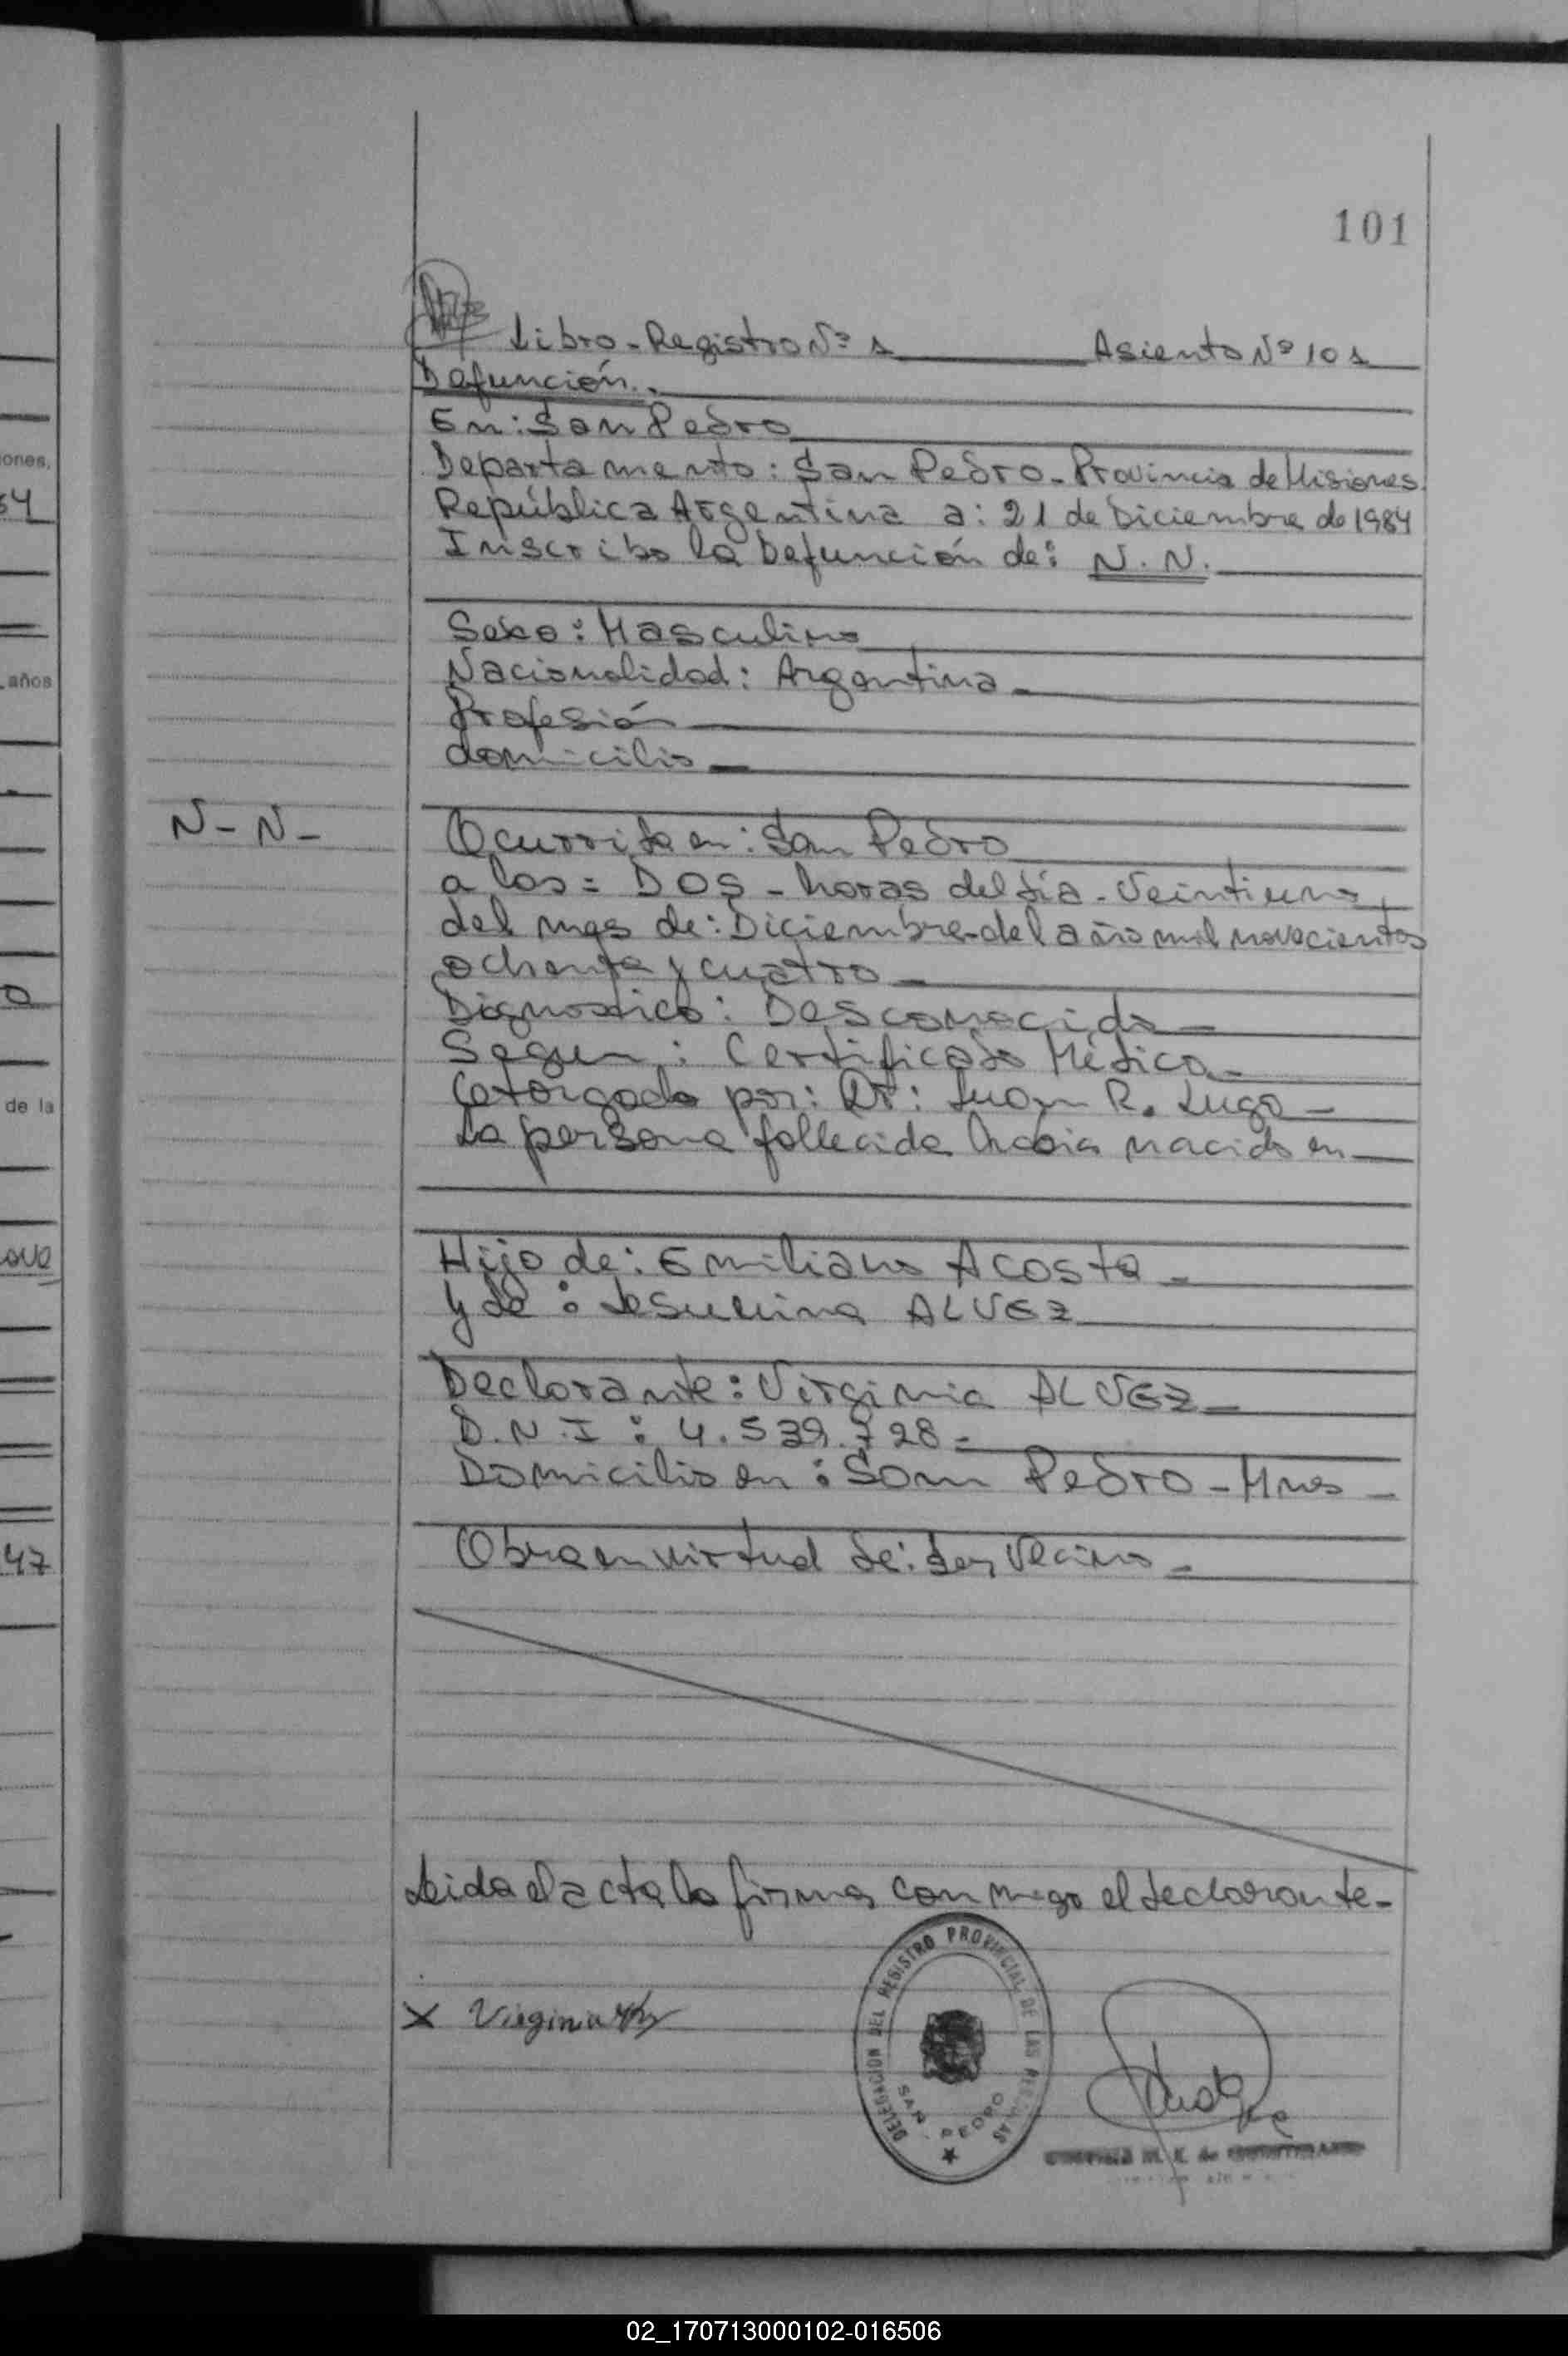 101
Libro-Registro Nº 1 Asiento Nº 101
Defunción.
En: San Pedro
Departamento: San Pedro-Provincia de Misiones.
República Argentina a: 21 de Diciembre de 1984
Inscribo la Defunción de: N.N.
Sexo: Masculino
Nacionalidad: Argentina
Profesión
domicilio
N-N-
Ocurrida en: San Pedro
a las = DOS - horas del día - Veintiuno
del mes de: Diciembre-del año mil novecientos
ochenta y cuatro
Dignostico: Desconocido
Segun: Certificado Médico
Otorgado por: Dr: Juan R. Lugo
La persona fallecida había nacido en
Hijo de: Emiliano Acosta
y de: Jesulina ALVEZ
Declarante: Virginia ALVEZ
D.N.I: 4.539.728
Domicilio en: San Pedro-Mnes
Obra en virtud de: Ser Vecino
Leida el acta la firma conmigo el declarante.
X Virginia
DELEGACION DEL REGISTRO PROVINCIAL DE LAS PERSONAS
SAN PEDRO
ones,
64
años
de la
47
02_170713000102-016506